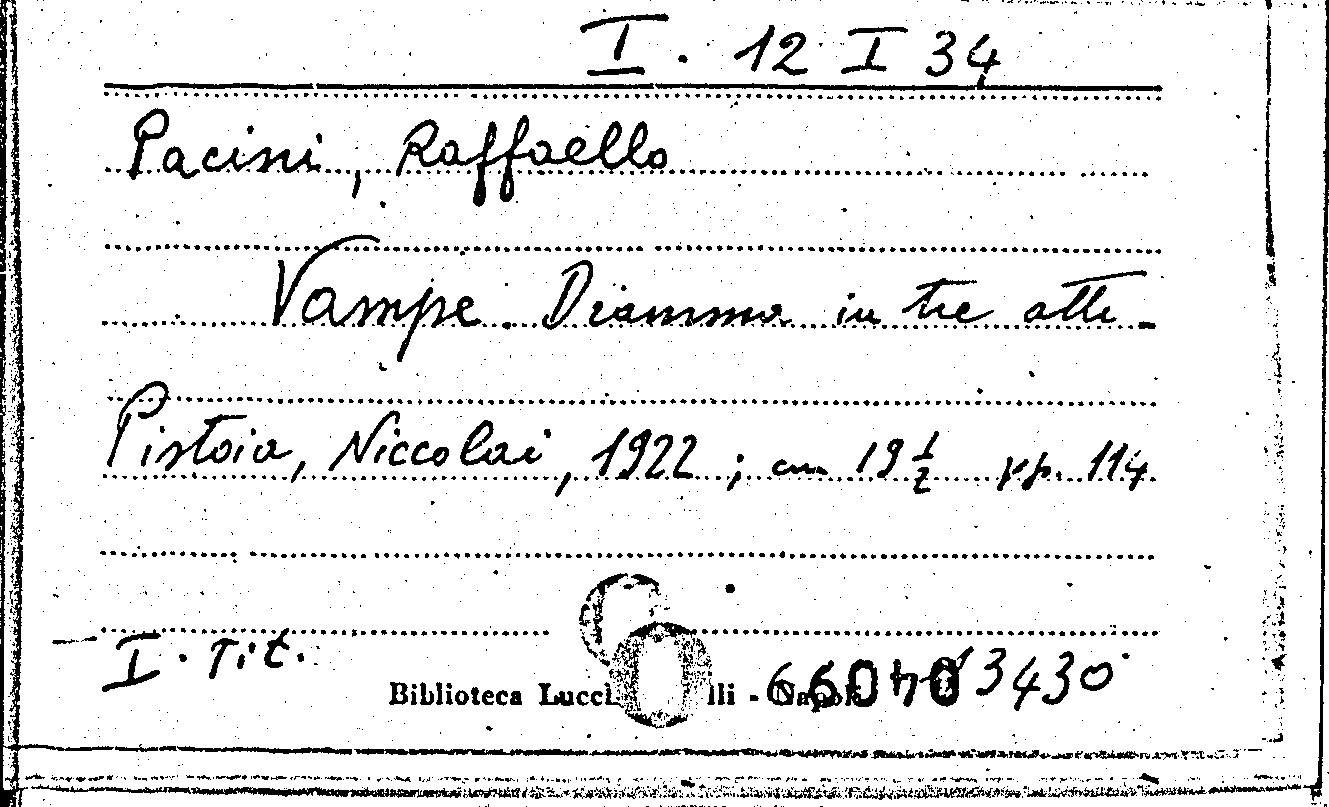 I. 12 I 34
Pacini, Raffaello
Vampe. Dramma in tre atti -
Pistoia, Niccolai, 1922; cm 19 1/2 pp. 114.
I. Tit.
Biblioteca lli - 3430